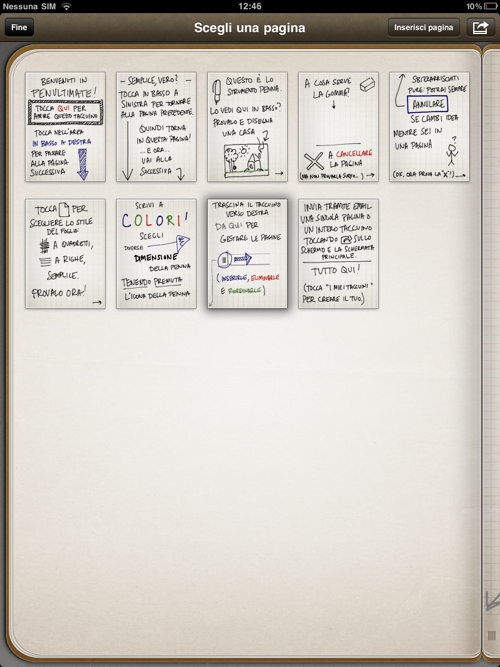 Nessuna SIM
12:46
10%
Fine
Scegli una pagina
Inserisci pagina
BENVENUTI IN
PENULTIMATE!
TOCCA QUI PER
APRIRE QUESTO TACCUINO
TOCCA NELL'AREA
IN BASSO A DESTRA
PER PASSARE
ALLA PAGINA
SUCCESSIVA
– SEMPLICE, VERO? –
TOCCA IN BASSO A
SINISTRA PER TORNARE
ALLA PAGINA PRECEDENTE.
QUINDI TORNA
IN QUESTA PAGINA!
...E ORA...
VAI ALLA
SUCCESSIVA
QUESTO È LO
STRUMENTO PENNA.
LO VEDI QUI IN BASSO?
PROVALO E DISEGNA
UNA CASA
A COSA SERVE
LA GOMMA?
A CANCELLARE
LA PAGINA
(MA NON PROVARLA SUBITO...)
SBIZZARRISCITI
PURE: POTRAI SEMPRE
ANNULLARE
SE CAMBI IDEA
MENTRE SEI IN
UNA PAGINA
?
(OK, ORA PROVA LA 'X'!)
TOCCA PER
SCEGLIERE LO STILE
DEL FOGLIO:
A QUADRETTI,
A RIGHE,
SEMPLICE.
PROVALO ORA!
SCRIVI A
COLORI!
SCEGLI
DIVERSE
DIMENSIONI
DELLA PENNA
TENENDO PREMUTA
L'ICONA DELLA PENNA
TRASCINA IL TACCUINO
VERSO DESTRA
DA QUI PER
GESTIRE LE PAGINE
(INSERIRLE, ELIMINARLE
E RIORDINARLE)
INVIA TRAMITE EMAIL
UNA SINGOLA PAGINA O
UN INTERO TACCUINO
TOCCANDO SULLO
SCHERMO E LA SCHERMATA
PRINCIPALE.
TUTTO QUI!
(TOCCA "I MIEI TACCUINI"
PER CREARE IL TUO)